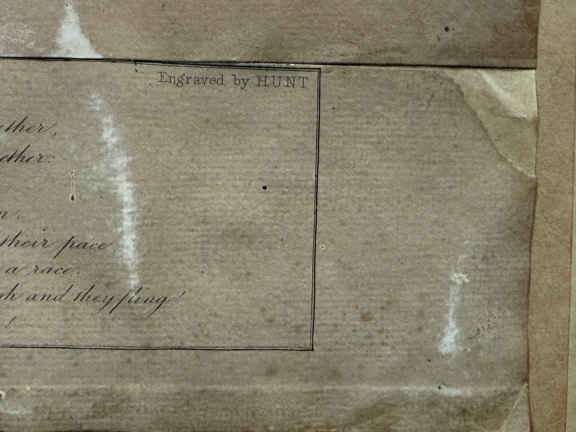 Engraved by HUNT
ther,
ther:
their pace
a race.
and they fling